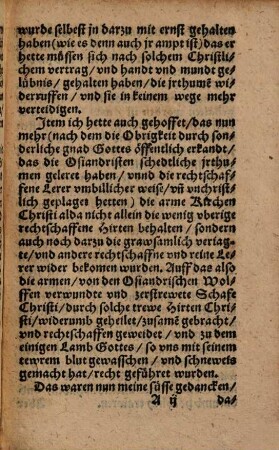 wurde selbest jn darzu mit ernst gehalten
haben (wie es denn auch jr ampt ist) das er
hette müssen sich nach solchem Christli⸗
chem vertrag / vnd handt vnd mundt ge⸗
lübnis / gehalten haben / die jrthume wi⸗
derruffen / vnd sie in keinem wege mehr
verteidigen.
Jtem ich hette auch gehoffet / das nun
mehr (nach dem die Obrigkeit durch son⸗
derliche gnad Gottes öffentlich erkandt /
das die Osiandristen schedtliche jrthu⸗
men geleret haben / vnnd die rechtschaf⸗
fene Lerer vmbillicher weise / vñ vnchrist⸗
lich geplaget hetten) die arme Kirchen
Christi alda nicht allein die wenig vberige
rechtschaffene Hirten behalten / sondern
auch noch darzu die grawsamlich veriag⸗
te / vnd andere rechtschaffne vnd reine Le⸗
rer wider bekomen wurden. Auff das also
die armen / von den Osiandrischen Wol⸗
ffen verwundte vnd zerstrewete Schafe
Christi / durch solche trewe Hirten Chri⸗
sti / widerumb geheilet / zusamē gebracht /
vnd rechtschaffen geweidet / vnd zu dem
einigen Lamb Gottes / so vns mit seinem
tewrem blut gewasschen / vnd schneweis
gemacht hat / recht geführet wurden.
Das waren nun meine süsse gedancken /
A ij
da⸗